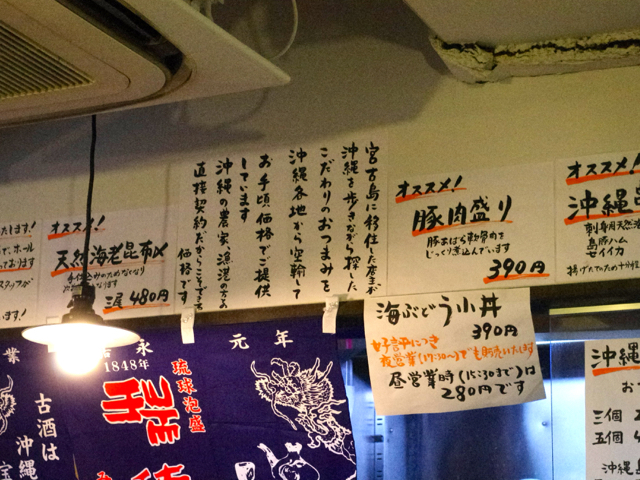 たします!
ホール
おります
スタッフが
います!
オススメ!
天然海老昆布〆
三尾480円
宮古島に移住した店主が
沖縄を歩きながら探した
こだわりのおつまみを
沖縄各地から空輸して
お手頃価格でご提供
しています
沖縄の農家、漁港の方の
直接契約だからこそできる
価格です
オススメ!
豚肉盛り
豚あばら軟骨肉を
じっくり煮込んでいます
390円
オススメ!
沖縄
刺身用天然
島豚ハム
セイイカ
揚げたてのため十分位
海ぶどう小丼
390円
好評につき
夜営業(17:30〜)でも販売いたします
昼営業時(15:30まで)は
280円です
沖縄
お
三個
五個
沖縄
業
古酒は
沖縄
宝
永
元年
1848年
琉球泡盛
瑞